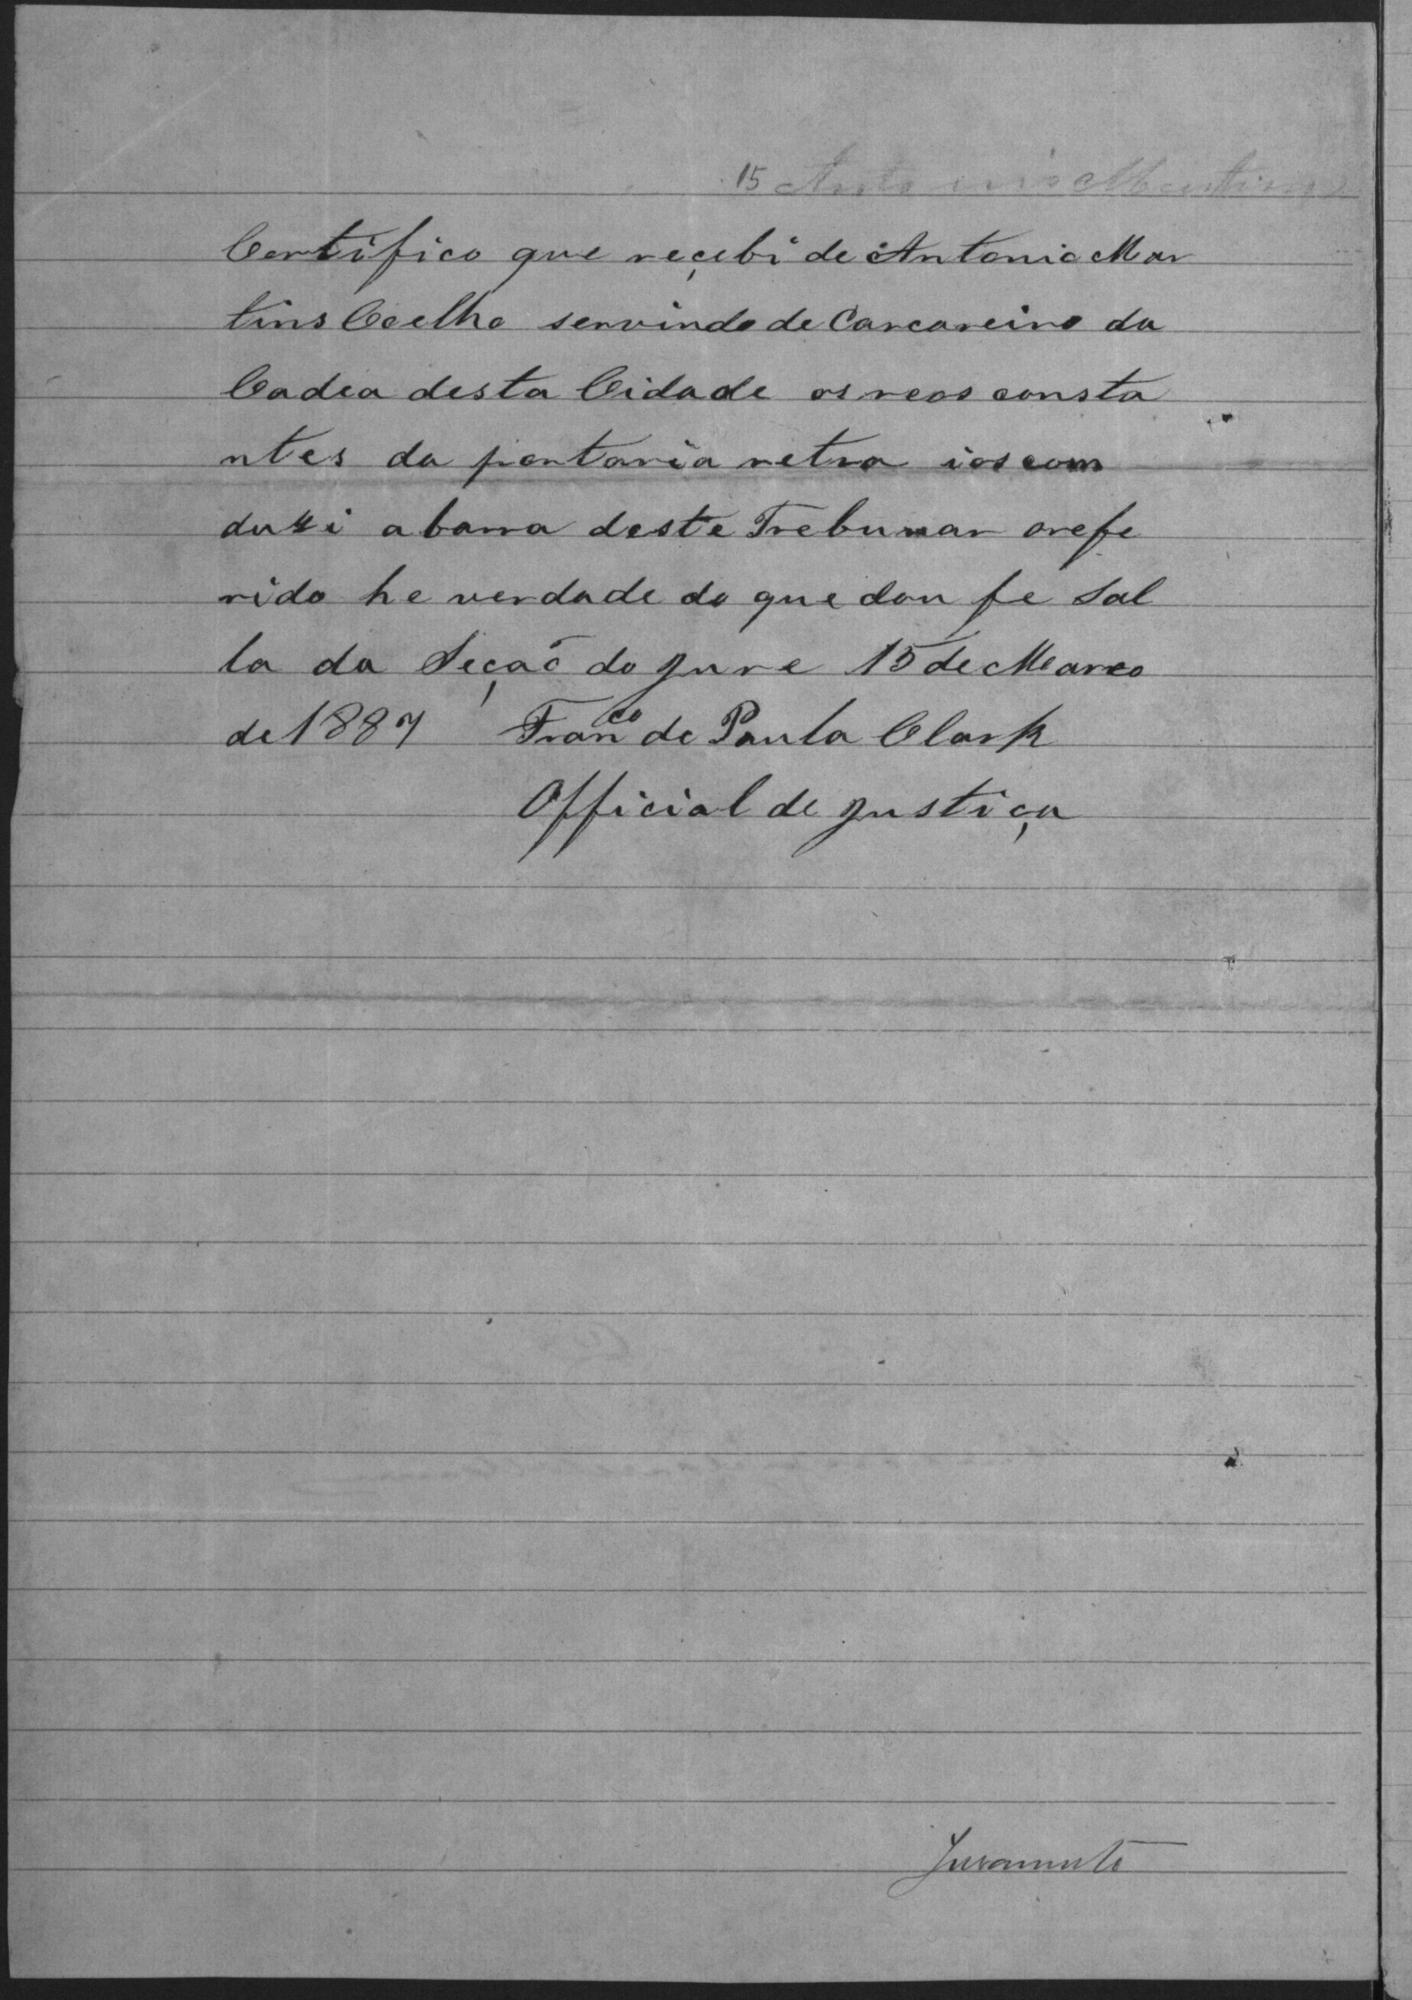 15 Antonio Martins
Certifico que reçebi de Antonio Mar
tins Coelho servindo de Carcareiro da
Cadea desta Cidade os reos consta
ntes da portaria retra ios com
duzi a barra deste Trebunar orefe
rido he verdade do que dou fe Sal
la da Seçaõ do Jure 15 de Março
de 1887 Fran.co de Paula Clark
Official de Justiça
Juramento